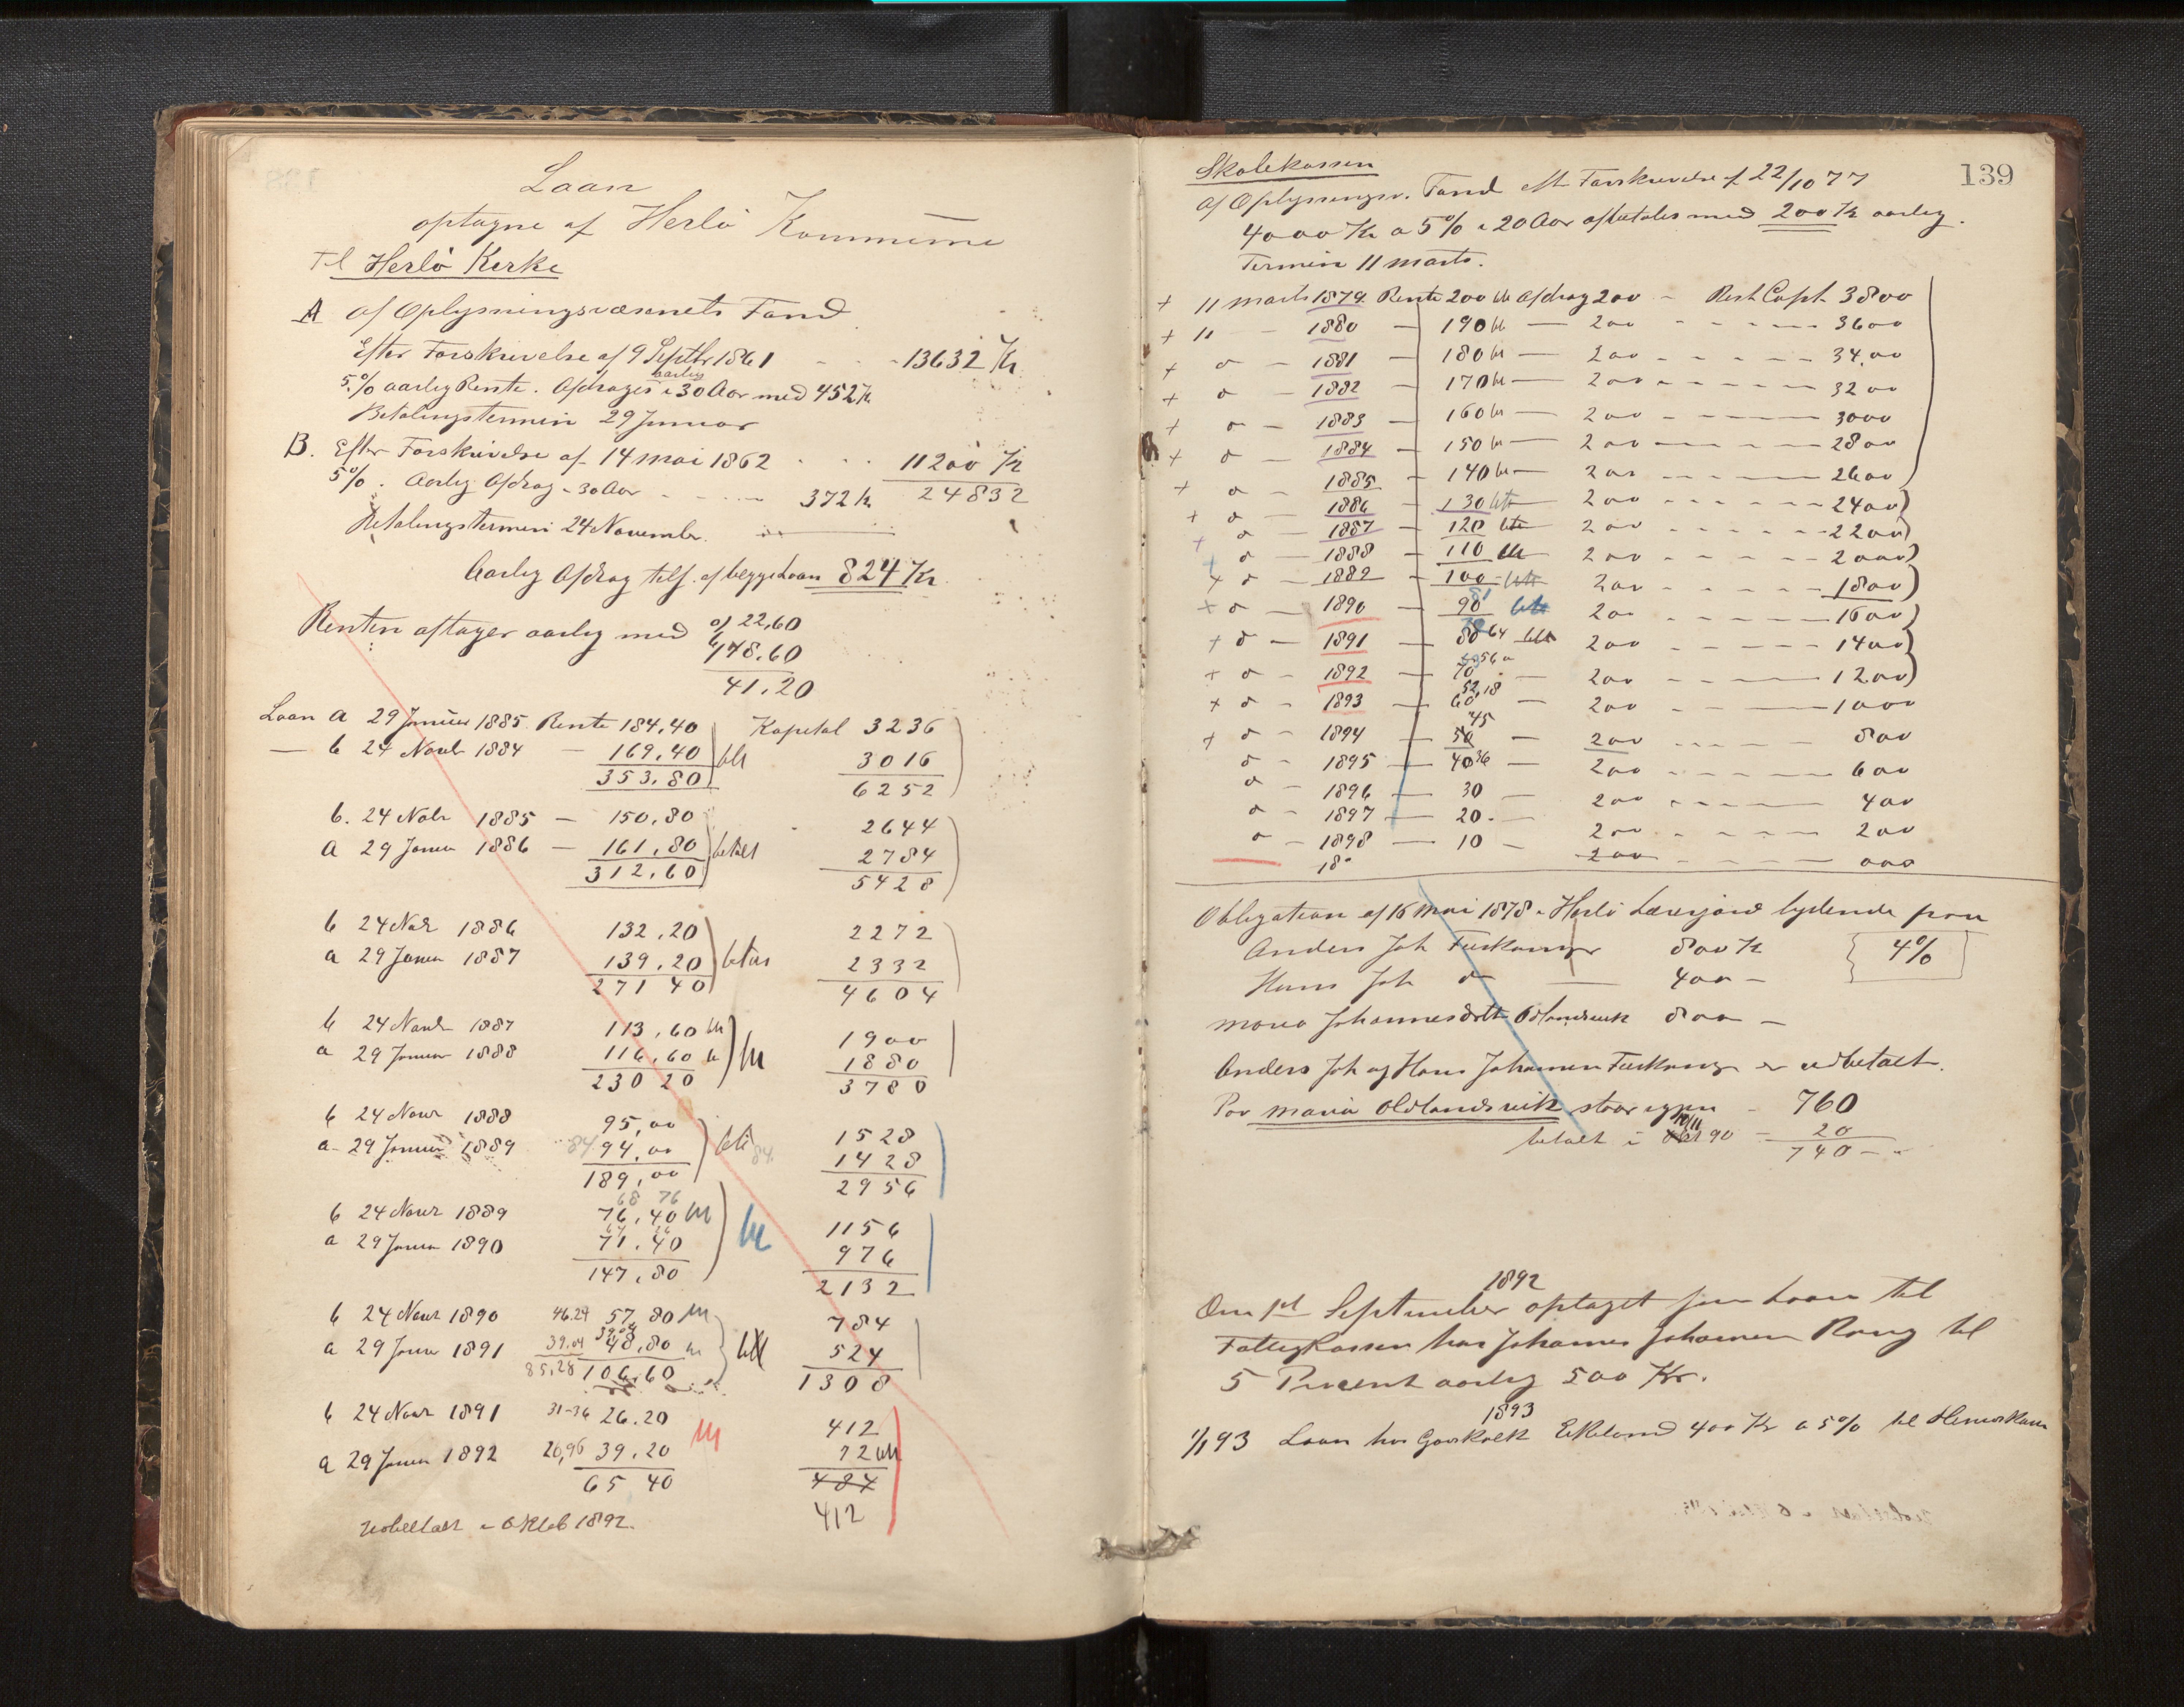 Laan
optagne af Herlö Kommune
Til Herlö Kirke
A af Oplysningsvæsenets Fond
Efter Forskrivelse af 9 Septbr 1861 - - - 13632 Kr
5% aarlig Rente. Afdrages aarlig i 30 Aar med 452 Kr
Betalingstermin 29 Januar
B. Efter Forskrivelse af 14 Mai 1862 . . . 11200 Kr
5%. Aarlig Afdrag i 30 Aar - - - - 372 Kr 24832
Betalingstermin 24 Novembr.
Aarlig Afdrag tils. af begge Laan 824 Kr
Renten aftager aarlig med a) 22,60
b) 18.60
41.20
Laan A 29 Januar 1885 Rente 184,40 Kapital 3236
— b 24 Novbr 1884 — 169,40 blt 3016
353.80 6252
b. 24 Nobr 1885 — 150,80 2644
A 29 Januar 1886 — 161,80 betalt 2784
312,60 5428
b 24 Nobr 1886 132,20 2272
a 29 Januar 1887 139.20 2332
271 40 4604
b 24 Novbr 1887 113,60 1900
a 29 Januar 1888 116,60 1880
230 20 3780
b 24 Novr 1888 95,00 1528
a - 29 Januar 1889 84 94,00 84 1428
189,00 2956
68 76
b 24 Novr 1889 76,40 1156
a 29 Januar 1890 71.40 976
147,80 2132
b 24 Novr 1890 46.24 57,80 784
a 29 Januar 1891 39.04 48,80 524
85,28 106,60 1308
b 24 Novr 1891 31-36 26.20 412
a 29 Januar 1892 20,96 39.20 72
65 40 484
412
Udbetalt i Oktob 1892.
139
Skolekassen
af Oplysningsv. Fond eft Forskrivelse af 22/10 77
4000 Kr a 5% i 20 Aar afbetales med 200 Kr aarlig.
Termin 11 Marts.
+ 11 Marts 1879 Rente 200 bt Afdrag 200 - Rest Capt 3800
+ 11 - 1880 — 190 bt — 200 - - - - 3600
+ d - 1881 — 180 bt — 200 - - - - 34.00
+ d - 1882 — 170 bt — 200 - - - - 3200
+ d - 1883 — 160 bt — 200 - - - - 3000
+ d - 1884 - 150 bt — 200 - - - - 2800
+ d - 1885 - 140 bt — 200 - - - - 2600
+ d - 1886 - 130 bt — 200 - - - - 2400
+ d - 1887 - 120 bt 200 - - - - 2200
+ d - 1888 - 110 bt 200 - - - - 2000
+ d - 1889 - 100 bt 200 - - - - 1800
+ d - 1890 — 90 81 blt 200 - - - - 1600
+ d - 1891 — 80 64 blt 200 - - - - 1400
+ d - 1892 — 70 56 - 200 - - - - 1200
+ d - 1893 — 60 52,18 - 200 - - - - 1000
+ d - 1894 — 50 45 - 200 - - - - 800
d - 1895 — 40 36 - 200 - - - - 600
d - 1896 — 30 - 200 - - - - 400
d - 1897 — 20. - 200 - - - - 200
d - 1898 — 10 - 200 - - - - 000
18
Obligation af 16 Mai 1878 i Herlö Lærerjord lydende paa
Anders Joh 800 Kr 4%
Hans Joh d — 400 —
Maria Johannesdatt Oldandsvik 800 —
Anders Joh og Hans Johannes er udbetalt.
Par Maria Oldandsvik staar igjen - 760
betalt i 10/11 90 - 20
740 - -
1892
Om 1st September optaget som Laan til
Fattigkassen hos Johannes Johannesen Rong til
5 Procent aarlig 500 Kr.
1893
1/1 93 Laan hos Ekeland 400 Kr a 5% til